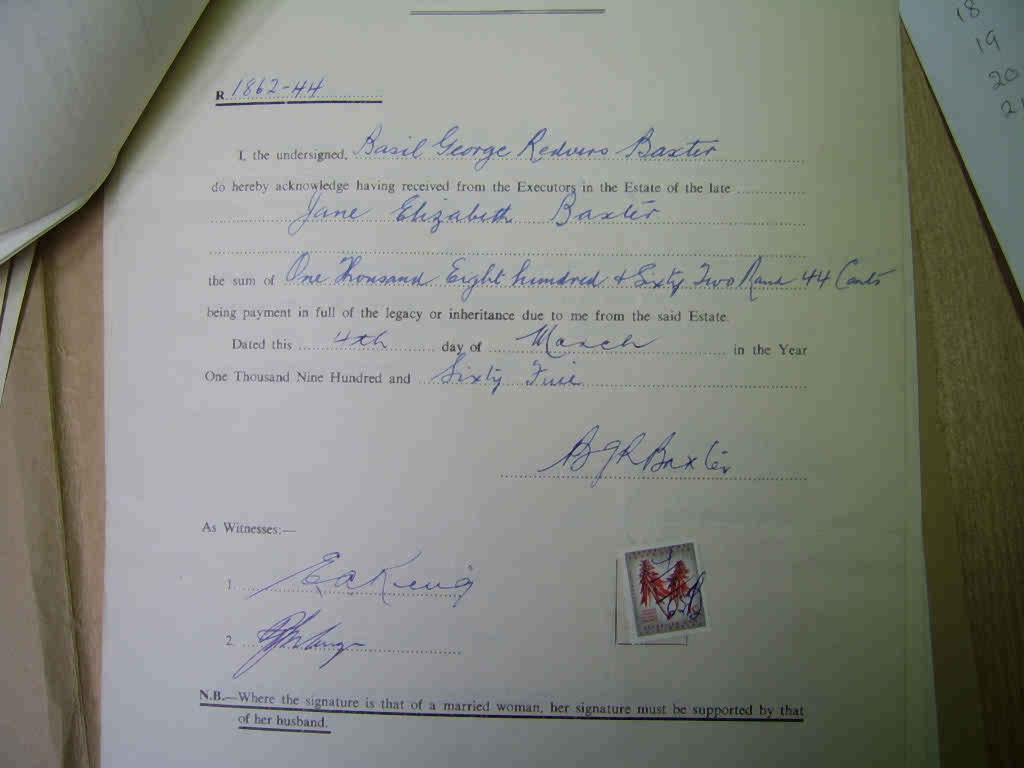 R 1862-44
I, the undersigned, Basil George Redvers Baxter
do hereby acknowledge having received from the Executors in the Estate of the late
Jane Elizabeth Baxter
the sum of One Thousand Eight hundred & Sixty Two Rand 44 Cents
being payment in full of the legacy or inheritance due to me from the said Estate.
Dated this 4th day of March in the Year
One Thousand Nine Hundred and Sixty Five
BGR Baxter
As Witnesses:—
1.
2.
N.B.—Where the signature is that of a married woman, her signature must be supported by that
of her husband.
18
19
20